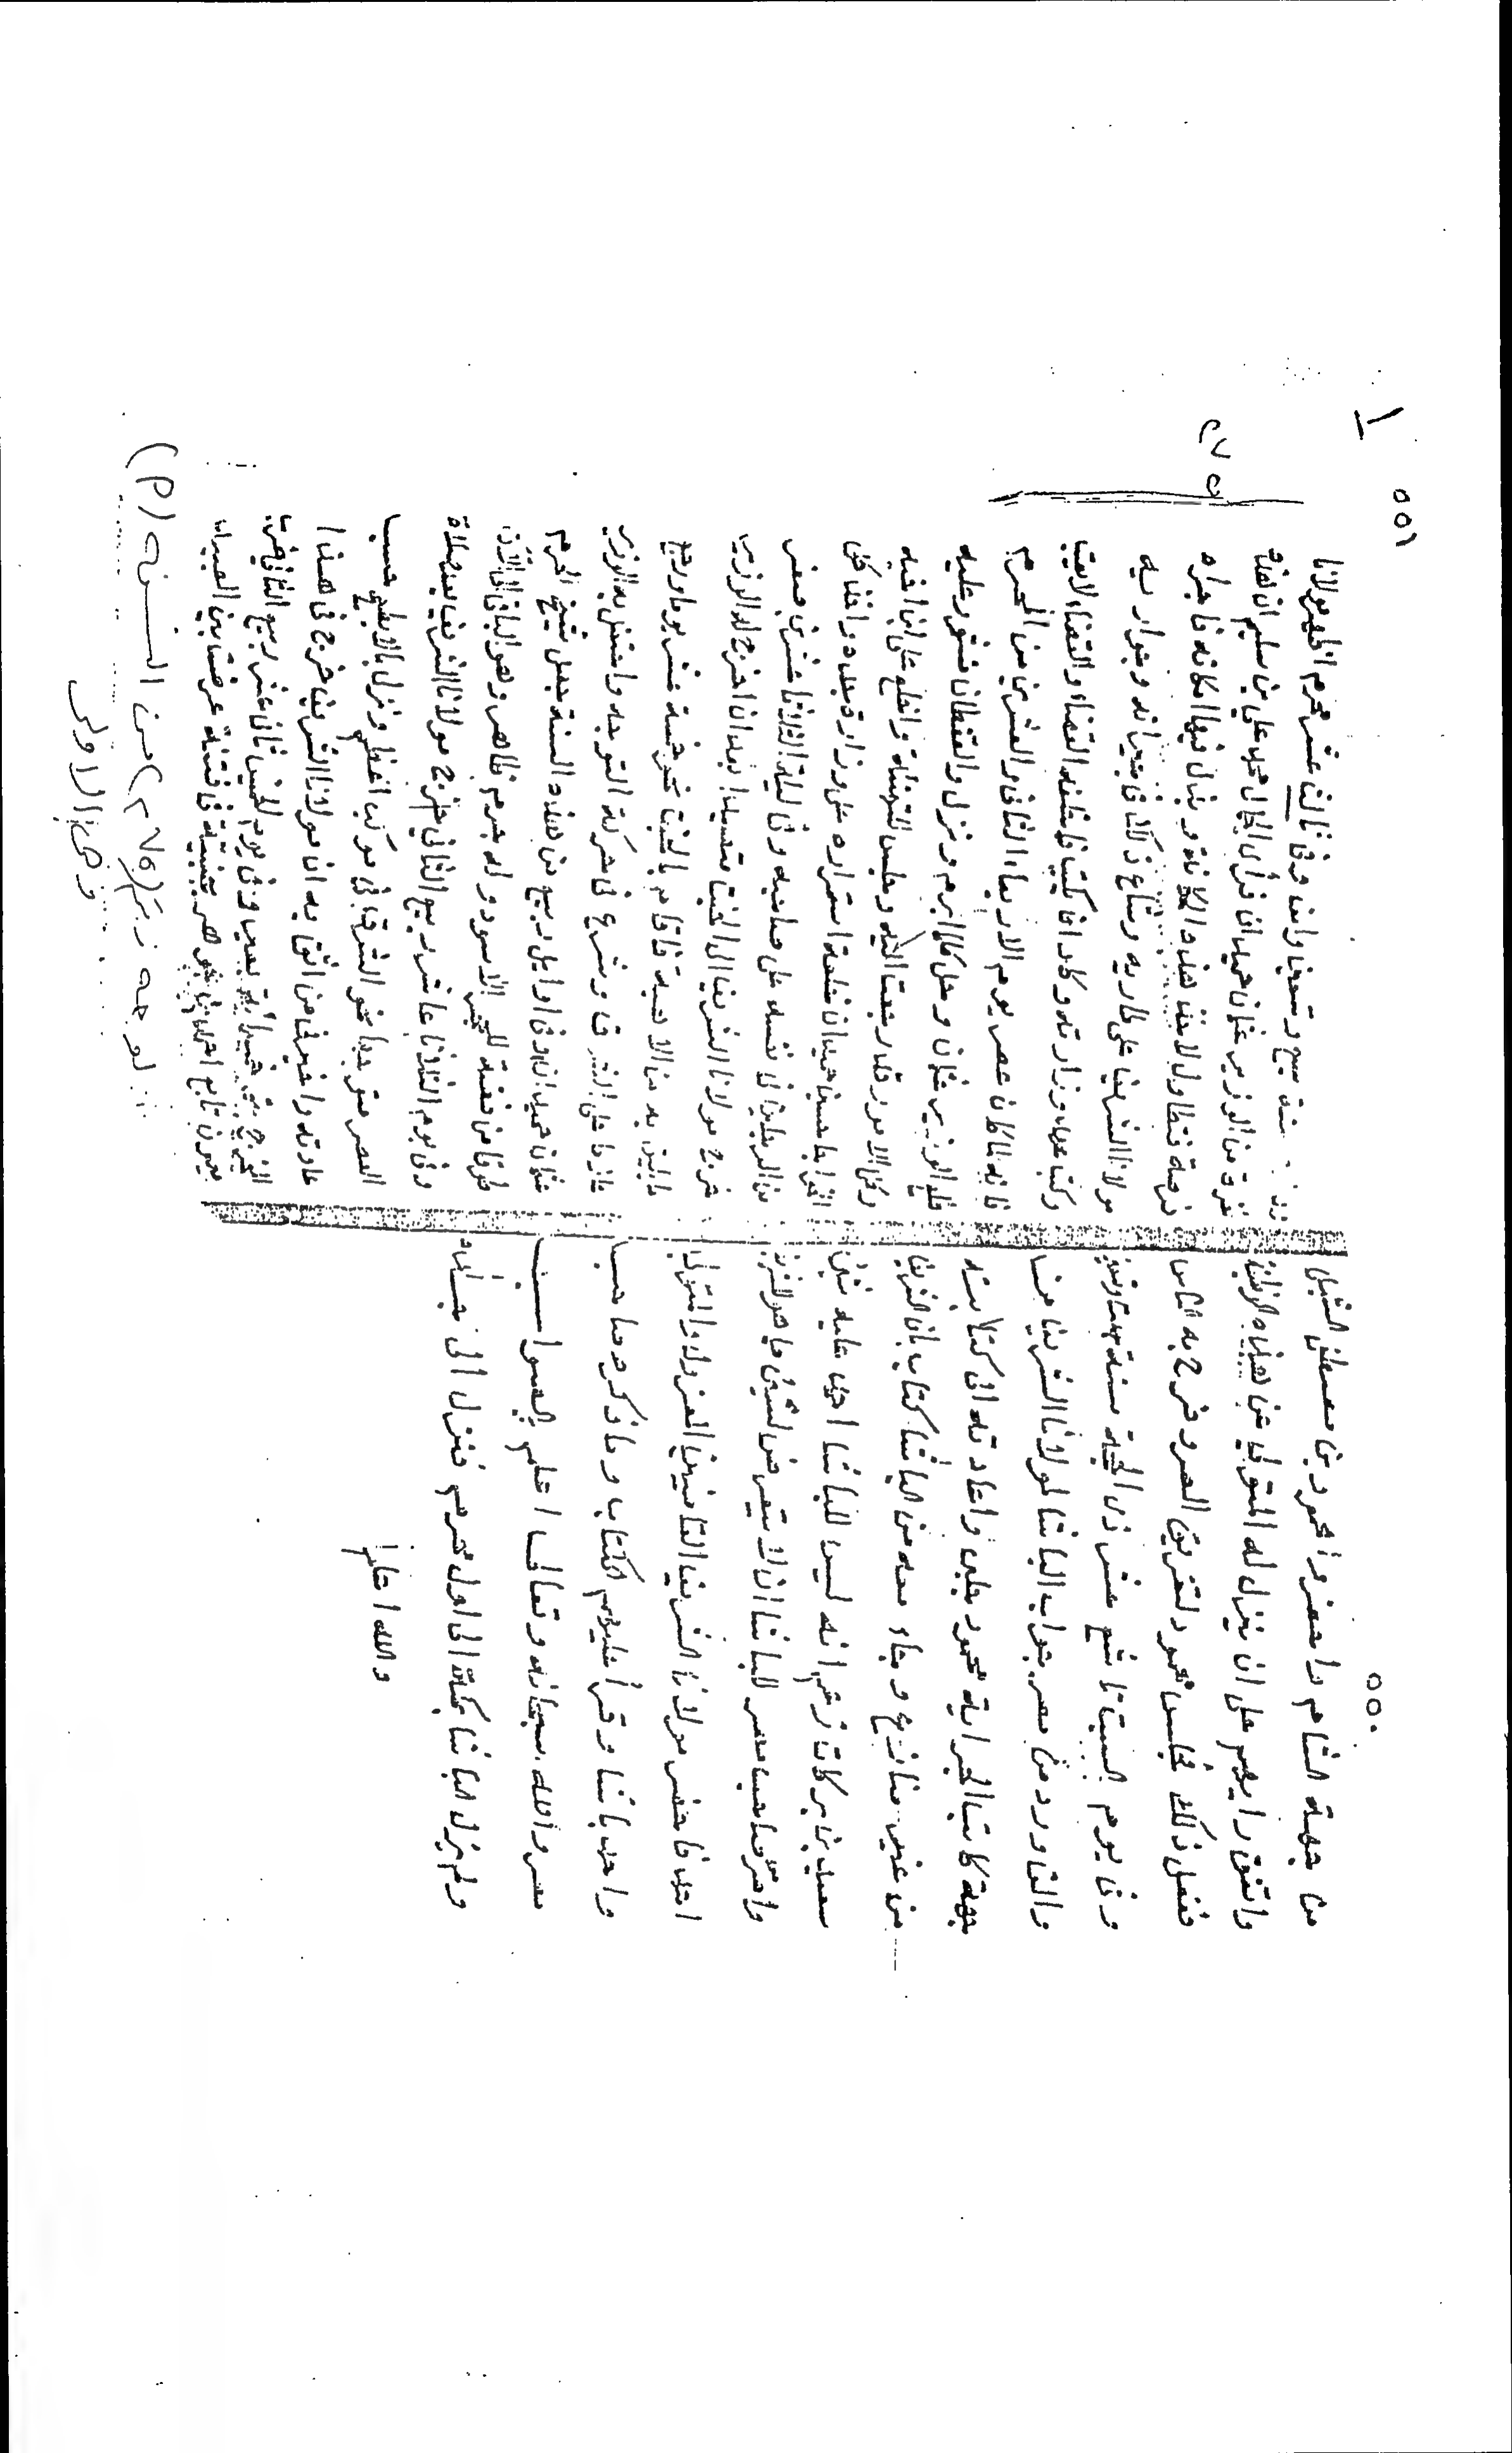 ٥٥٠
من جهة الشام واحضروا محمود بن مصطفى الشيبى
واتفق رايهم على ان ينزل له المتولي عن هذه الوظيفة
ففعل ذلك فجلس محمود لتفريق الصر وفرح به الناس
وفى يوم السبت تاسع عشر ذى الحجة سنة
والتى ورد من مصر جواب الباشا لمولانا الشريف من
جهة كاتب الجراية محمود جلبى واعادته الى كتابته
من غير منازع وجاء معه من الباشا كتاب بان الشريف
سعيد بن بركات زعم انه ليس للباشا احمد عليه شئ
وامر صاحب مصر للباشا ان لا يتعرض لشئ ما هو للشريف
احمد فاحضر مولانا الشريف القاضيين المعزول والمتولى
واحمد باشا وقرأ عليهم الكتاب وما ذكره صاحب
مصر والله سبحانه وتعالى اعلم بالصواب
ولم يزل الباشا بمكة الى اول محرم فنزل الى جده
والله اعلم
٥٥١
٢٧٥
سنة سبع وتسعين والف وفى ثالث عشر محرم اظهر مولانا
نفرة من الوزير عثمان حميدان فرأى الجمال محمد على بن سليم ان هذه
فرصة فتطاول لاخذ هذه المكانة وبذل فيها امكانه فاجراه
مولانا الشريف على طاريه وشاع ذلك فى جيرانه وجواريه
وكتب عهد وزارته وكاد ان يكتب فاخلفه القضاء والقضاء لا يعيب
فانه لما كان عصر يوم الاربعاء الثانى والعشرين من المحرم
خلع الوزير عثمان وحل كلما ابرم ونزل والقفطان منشور عليه
وكل الامور قد رجعت اليه وجلس للتهنئة واخلع على ابن اخيه
الخواجا حسين حميدان خلعة استمراره على وزارة جده واخذ كل
من الرجلين فى نفسه على صاحبه وفى ليلة الثلاثا عشرين صفر
خرج مولانا الشريف الى الخبت متصيدا بعد ان اخرج له الوزير
ما يليق به من الاهبة فاقام بالخبت نحو خمسة عشر يوما ورجع
عازما على الشرق وشرع فى حركة التوجه واحتفل به الوزير
عثمان حميدان وفى اوايل ربيع من هذه السنة جعل شيخ الحرم
طوقا من فضة للحجر الاسود وله جرم ظاهر وهو الباقى الى الآن
وفى يوم الثلاثا عاشر ربيع الثانى خرج مولانا الشريف بعد صلاة
العصر متوجها نحو الشرق فى موكب اعظم ونزل بالابطح حسب
عادته واخبرنى من اثق به ان مولانا الشريف خرج فى هذا
المخرج يوم الخميس ثانى عشر ربيع الثانى
بيسر تابع احمد بن جوهر بجنبية فى فتنة عرضت بين العبيد
لوحه رقم (٧٥) من النسخه (م)
وهى الاولى